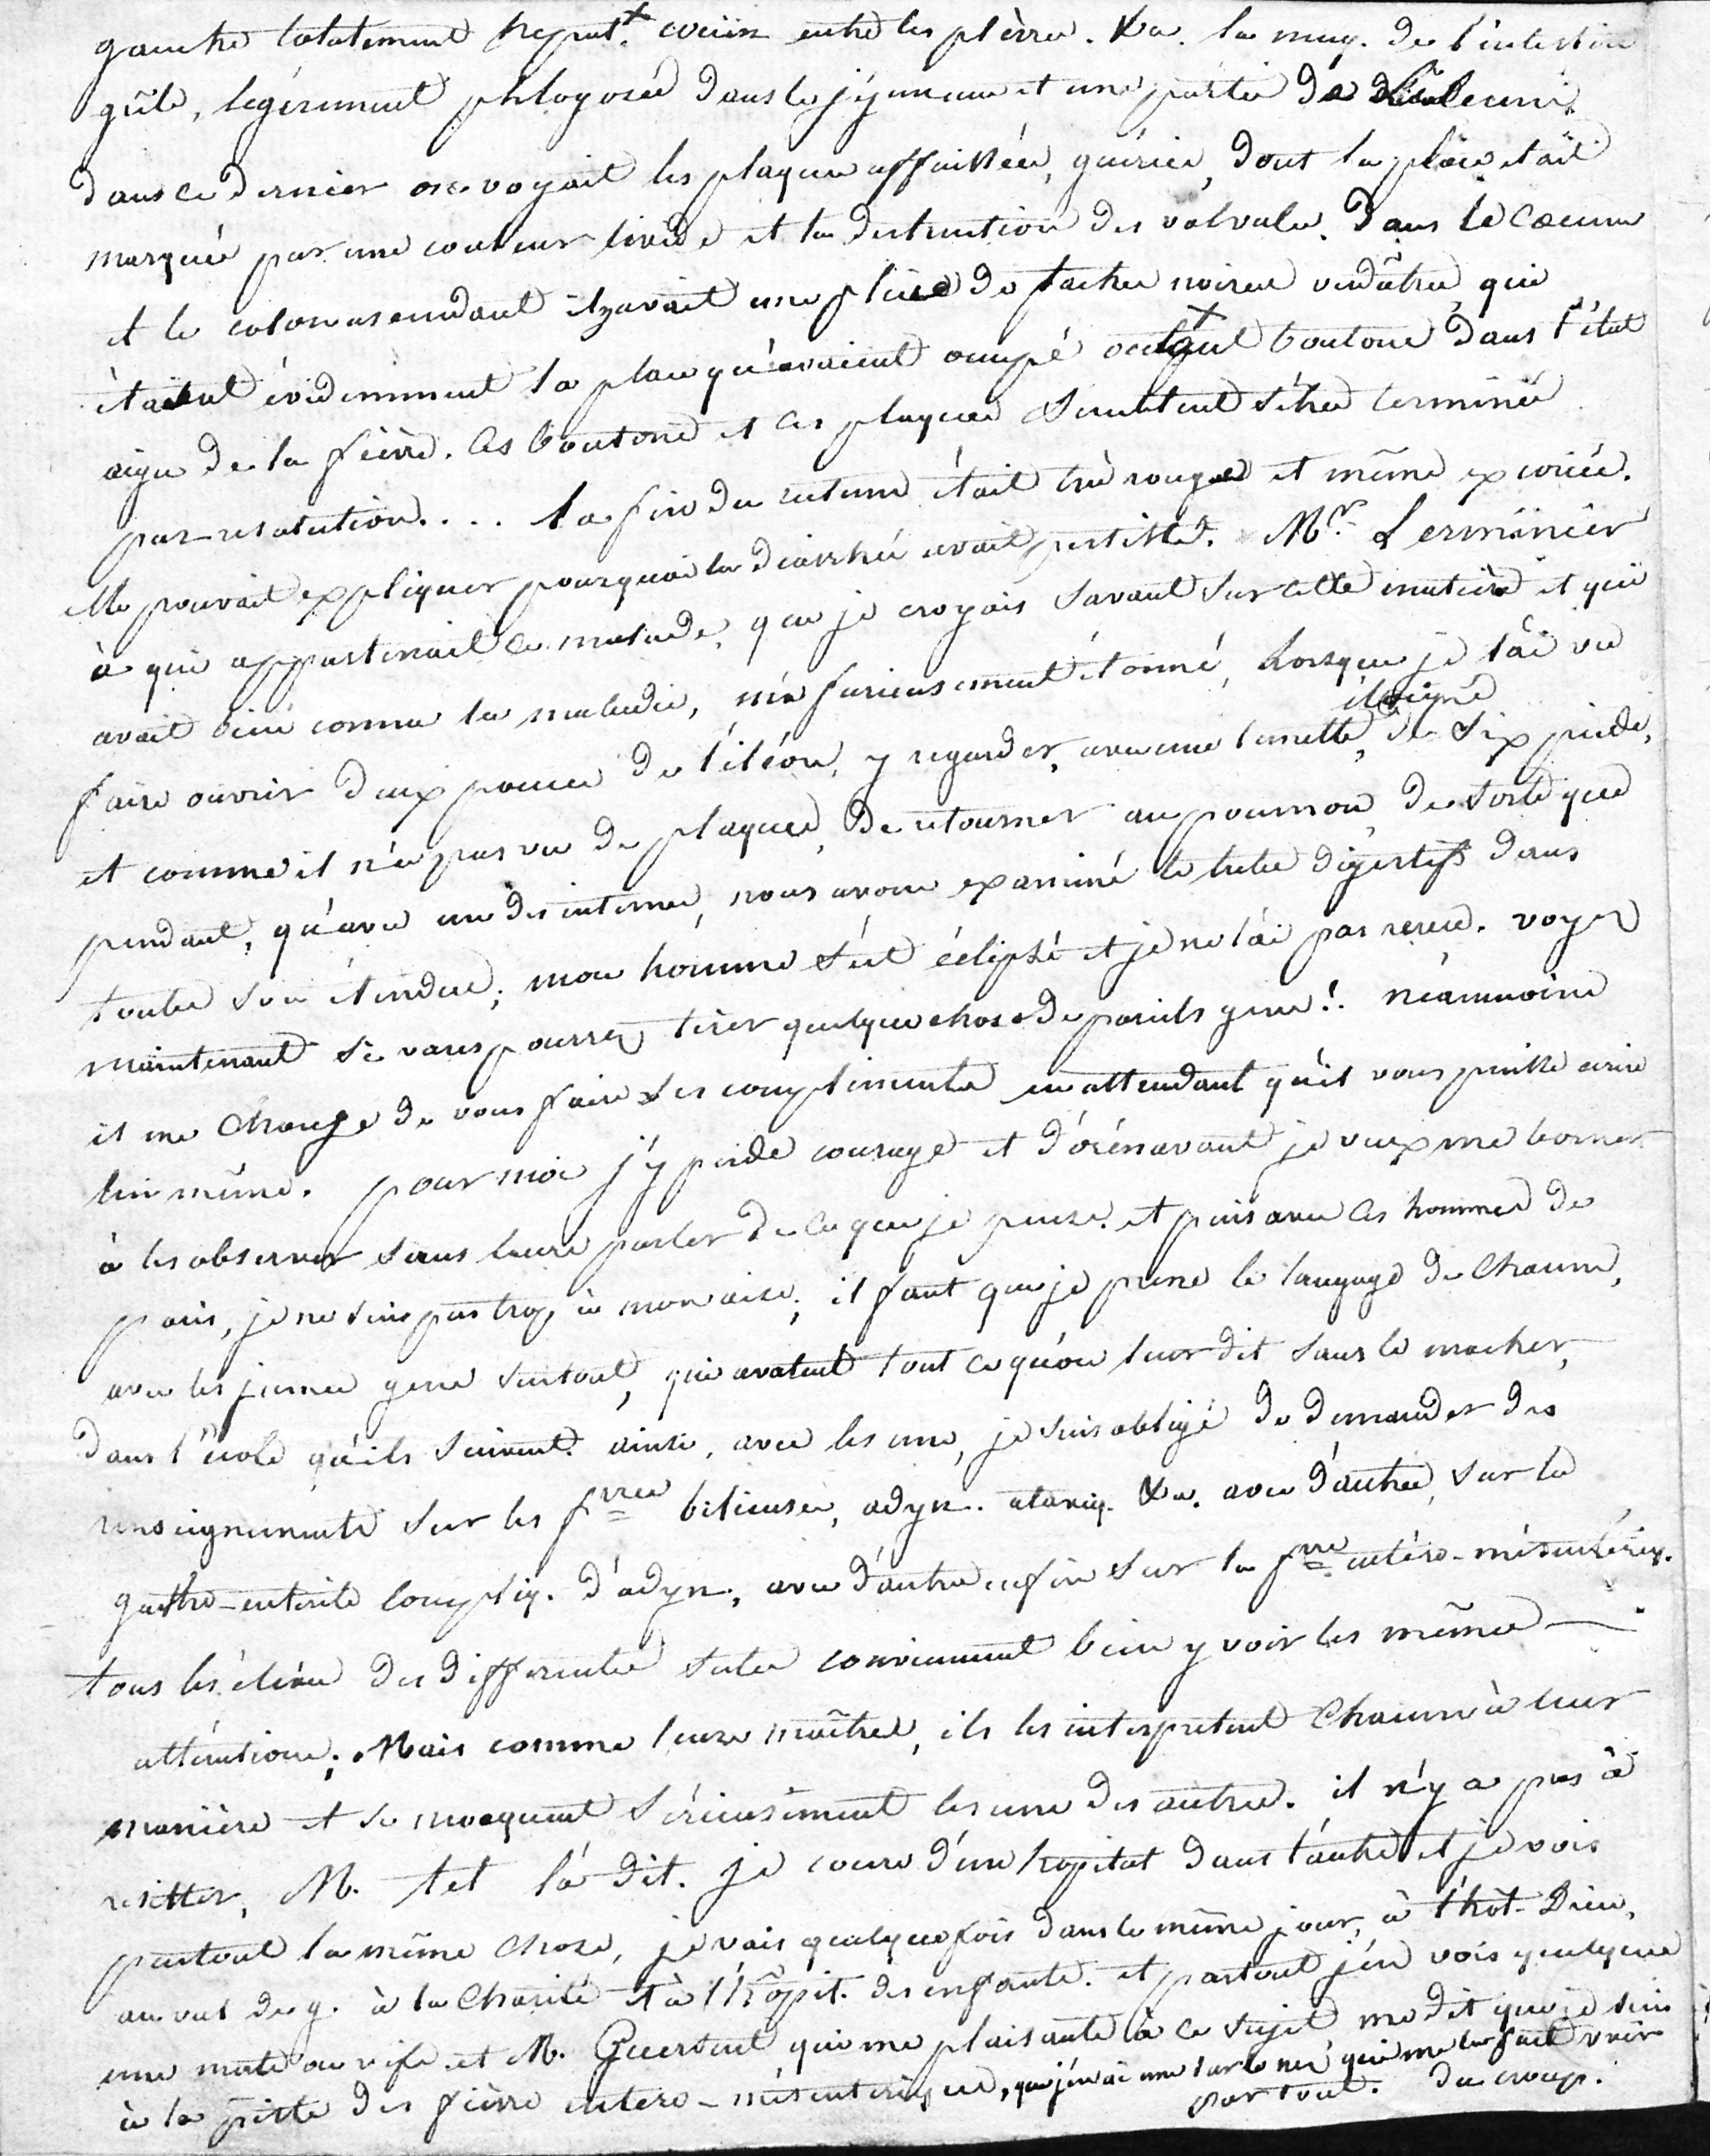 gauche totalement hepat. coëün entre les plèvres. &a. la muq. de l'intestin
grêle, légèrement phlogosée dans le jéjunum et une partie de l'iléum,
dans ce dernier on voyait les plaques affaissées, guéries, dont la place était
marquée par une couleur livide et la destruction des valvules. dans le Cœcum
et le colon ascendant il y avait une de taches noires verdâtres, qui
étaient évidemment la place qu'avaient occupé boutons dans l'état
aigu de la fièvre. Ces boutons et ces plaques semblent s'être terminés
par résolution.... la fin du rectum était très rouge et même excoriée.
elle pouvait expliquer pourquoi la diarrhée avait persisté. Mr. Lerminier
à qui appartenait ce malade, que je croyais savant sur cette matière et qui
avait bien connu la maladie, m'a furieusement étonné, lorsque je l'ai vu
faire ouvrir deux pouces de l'iléon, y regarder, avec une lunette, éloigné de six pieds,
et comme il n'a pas vu de plaques, de retourner au poumon de sorte que
pendant, qu'avec un des internes, nous avons examiné le tube digestif dans
toute son étendue; mon homme s'est éclipsé et je ne l'ai pas revu. voyez
maintenant si vous pourrez tirer quelque chose de pareils gens! néanmoins
il me charge de vous faire ses compliments en attendant qu'il vous puisse écrire
lui même. pour moi j'y perds courage et d'orénavant je veux me borner
à les observer sans leurs parler de ce que je pense. et puis avec ces hommes de
paris, je ne suis pas trop à mon aise; il faut que je prene le langage de chacun,
avec les jeunes gens surtout, qui avalent tout ce qu'on leur dit sans le macher,
dans l'école qu'ils suivent. ainsi, avec les uns, je suis obligé de demander des
renseignements sur les fvres bilieuses, adyn. ataxiq. &a. avec d'autres, sur la
gastro-entérite compliq. d'adyn, avec d'autres enfin sur la fvre entéro-mésentériq.
tous les élèves des differentes sectes conviennent bien y voir les mêmes
altérations; Mais comme leurs maîtres, ils les interpretent chacun à leur
manière et se moquent sérieusement les uns des autres. il n'y a pas à
résister, M. tel l'a dit. je cours d'un hopital dans l'autre et je vois
partout la même chose, je vais quelquefois dans le même jour, à l'hôt-Dieu,
au val de g. à la Charité et à l'hôpit. des enfants. et partout j'en vois quelqu'
une morte ou vive. et M. Guersent qui me plaisante à ce sujet me dit que je suis
à la piste des fièvre entéro-mésentérique, que j'en ai une sur le nez qui me les fait voir
partout. du croup.